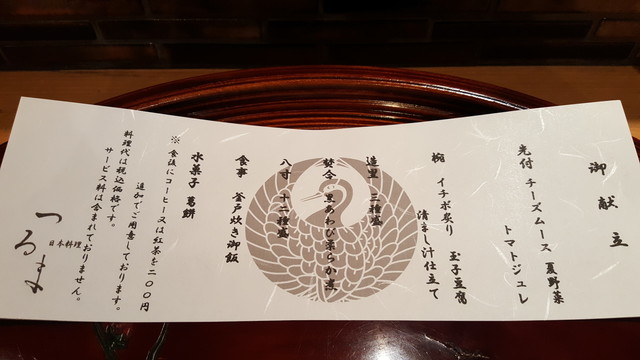 御献立
先付 チーズムース 夏野菜
トマトジュレ
椀 イチボ炙り 玉子豆腐
清まし汁仕立て
造里 三種盛
焚合 黒あわび柔らか煮
八寸 十二種盛
食事 釜戸炊き御飯
水菓子 葛餅
※ 食後にコーヒー又は紅茶を二〇〇円
追加でご用意しております。
料理代は税込価格です。
サービス料は含まれておりません。
日本料理
つるま